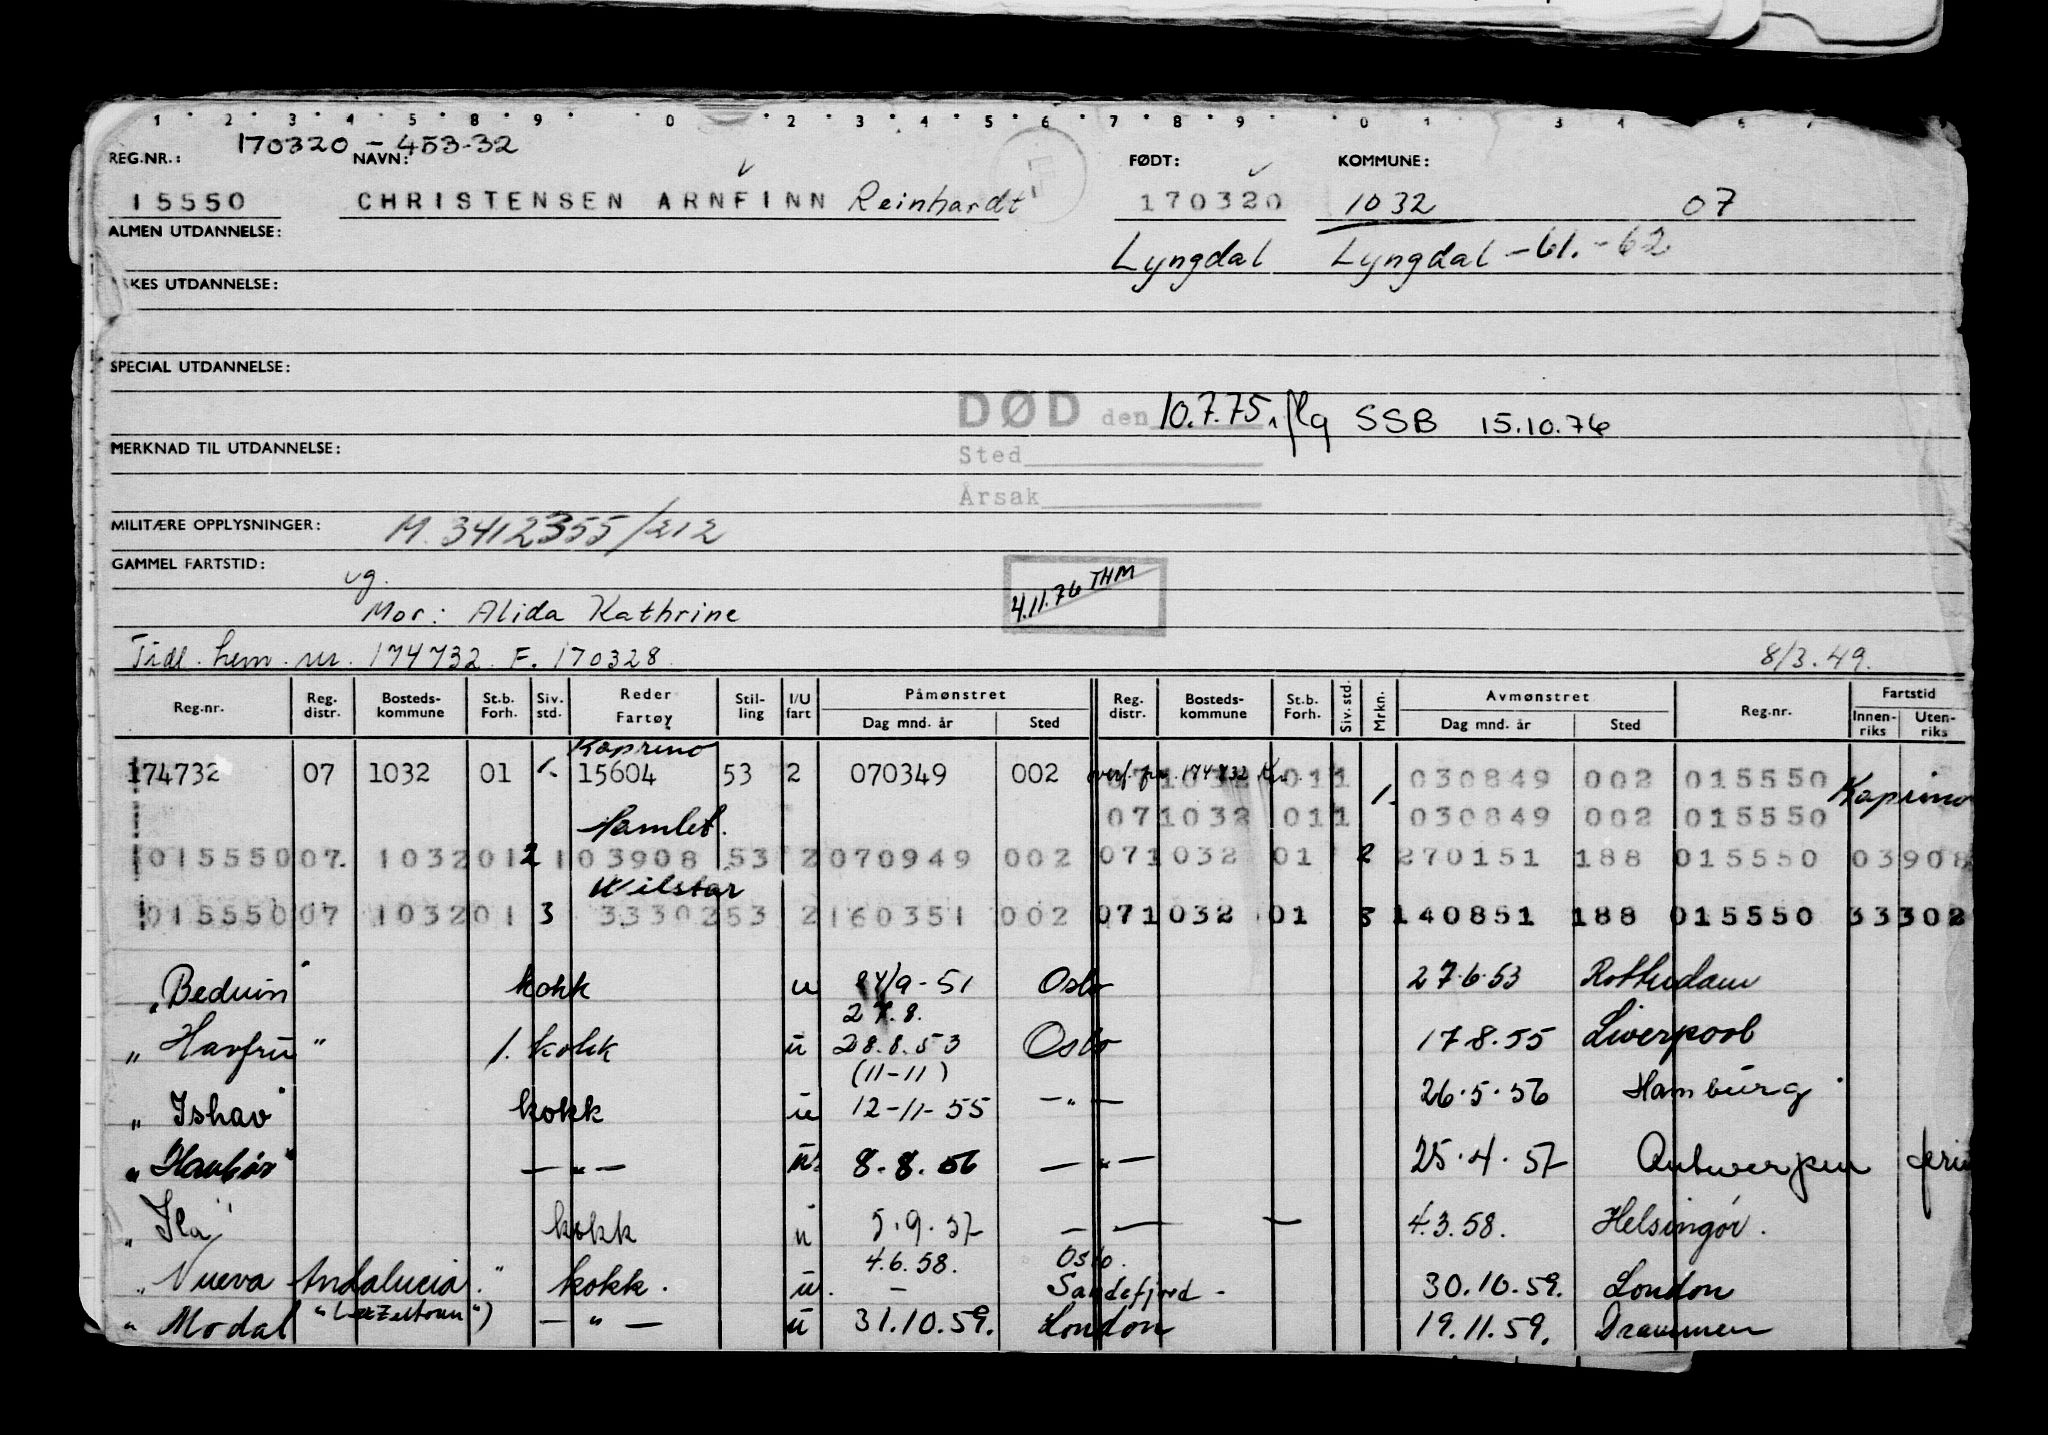 170320 - 453-32
REG.NR.: NAVN: FØDT: KOMMUNE:
15550 CHRISTENSEN ARNFINN Reinhardt 170320 1032 07
ALMEN UTDANNELSE: Lyngdal Lyngdal -61. -62
UTDANNELSE:
SPECIAL UTDANNELSE:
DØD den 10.7.75, flg SSB 15.10.76
MERKNAD TIL UTDANNELSE: Sted
Årsak
MILITÆRE OPPLYSNINGER: M. 3412355/212
GAMMEL FARTSTID:
ug. 4.11.76 THM
Mor: Alida Kathrine
Tidl. hem. nr. 174732 F. 170328 8/3.49.
Reg.nr. Reg. distr. Bosteds-kommune St.b. Forh. Siv. std. Reder Fartøy Stil-ling I/U fart Påmønstret Dag mnd. år Sted Reg. distr. Bosteds-kommune St.b. Forh. Siv. std. Mrkn. Avmønstret Dag mnd. år Sted Reg.nr. Fartstid Innen-riks Uten-riks
Kaprino
174732 07 1032 01 1. 15604 53 2 070349 002 overf. fra 174732 071032 011 1. 030849 002 015550 Kaprino
Hamlet. 071032 011 030849 002 015550
015550 07. 1032 01 2 103908 53 2 070949 002 071032 01 2 270151 188 015550 03908
Wilstar
015550 07 1032 01 3 33302 53 2 160351 002 071032 01 3 140851 188 015550 33302
"Beduin" kokk u 24/9-51 Oslo 27.6.53 Rotterdam
27.8.
"Havfru" 1. kokk u 28.8.53 Oslo 17.8.55 Liverpool
(11-11)
"Ishav" kokk u 12-11-55 -"- 26.5.56 Hamburg
"Havkør" -"- u. 8.8.56 -"- 25.4.57 Antwerpen
"Ila" kokk u 5.9.57 - - - 4.3.58. Helsingør.
4.6.58. Oslo.
"Nueva Andalucia" kokk. u. - Sandefjord - 30.10.59. London
"Modal" -"- u 31.10.59. London 19.11.59. Drammen